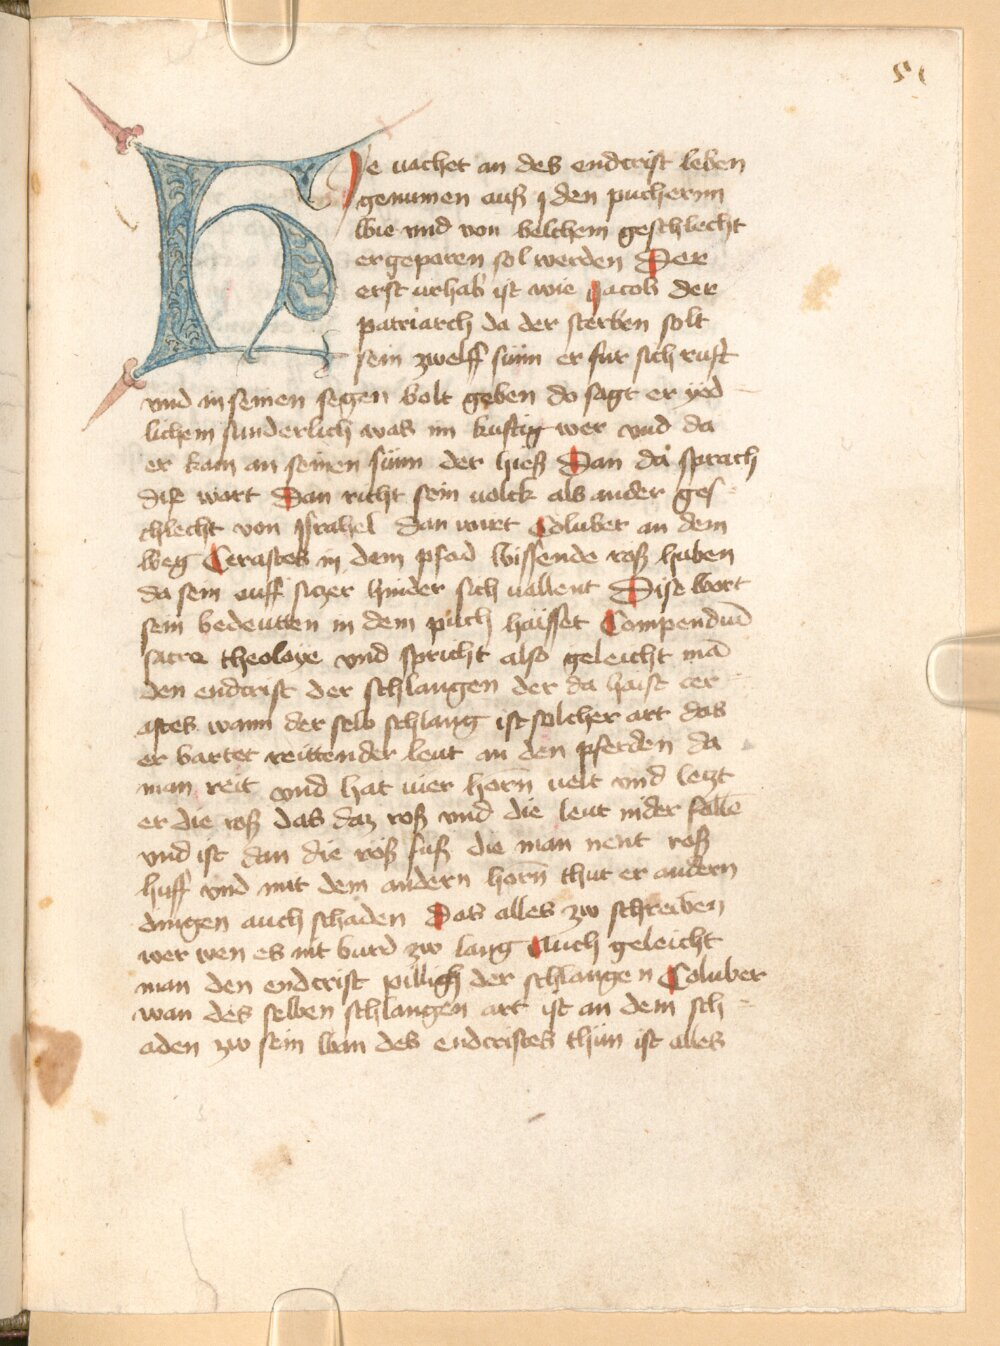 51
HJe vachet an des endcrist leben
genumen auß den puchernn
Wie vnd von belchem geschlecht
er geparen sol werden Der
erst vrhab ist wie Jacob der
patriarch da der sterben solt
sein zwelff sünn er fur sich ruft
vnd in seinen segen bolt geben do sagt er yed
lichem sunderlich was im kuftig wer vnd da
er kam an seinen sünn der hieß Dan da sprach
diß wort Dan richt sein volck als ander ges
chlecht von israhel dan wirt Coluber an dem
weg Cerastes in dem pfad bissende roß huben
da sein auff siczer hinder sich vallent Dise wort
sein bedeutten in dem puch haisset Compendiū
sacre theoloye vnd spricht also geleicht mā
den endcrist der schlangen der da haist cer
astes wann der selb schlang ist solcher art das
er bartet reittender leut an den pferden da
man reit vnd hat vier horn̄ velt vnd leczt
er die roß das daz roß vnd die leut nider fallē
vnd ist dan die roß fuß die man nent roß
huff vnd mit dem andern horn̄ thut er andern
dingen auch schaden Das alles zw schreiben
wer wen es nit burd zw lang Auch geleicht
man den endcrist pillich der schlangen Coluber
wan des selben schlangen art ist an dem sch
aden zw sein wan des endcristes thun ist alles